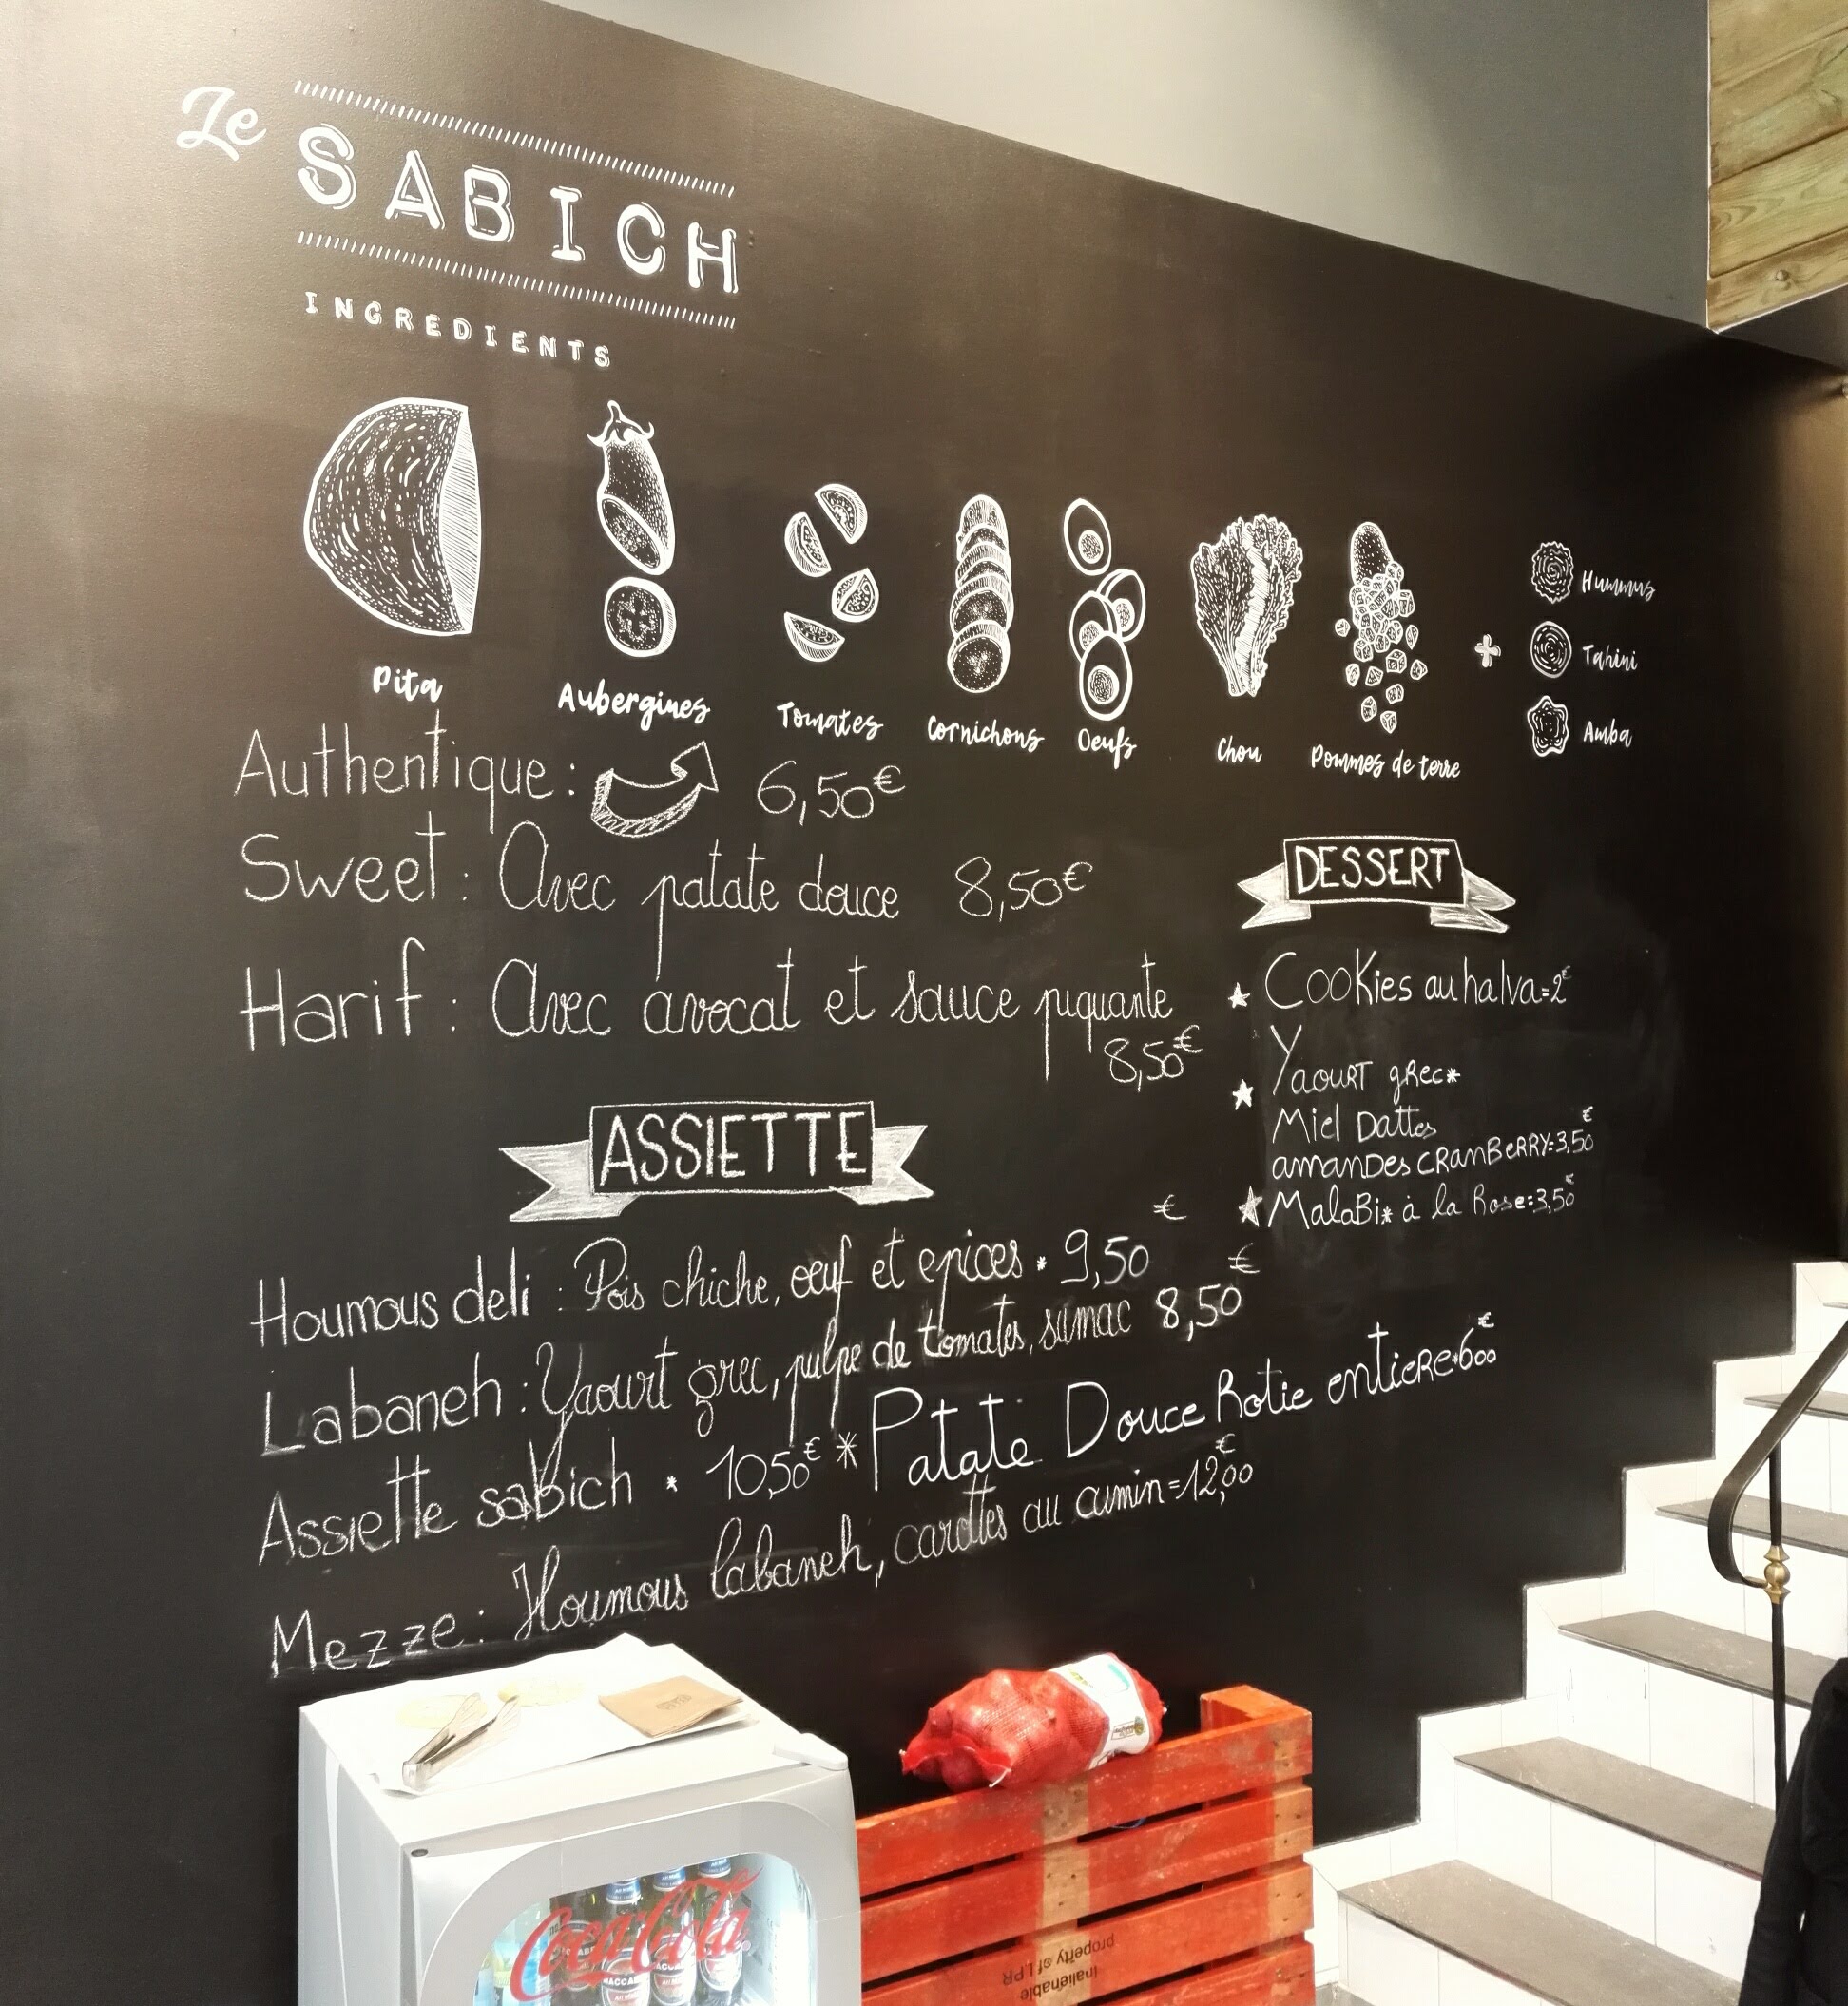 Le SABICH
INGREDIENTS
Pita
Aubergines
Tomates
Cornichons
Oeufs
Chou
Pommes de terre
+
Hummus
Tahini
Amba
Authentique : 6,50€
Sweet : Avec patate douce 8,50€
Harif : Avec avocat et sauce piquante
8,50€
DESSERT
Cookies au halva=2€
Yaourt grec*
Miel Dattes
amandes cranberry=3,50€
Malabi* à la Rose=3,50€
ASSIETTE
Houmous deli : Pois chiche, oeuf et epices * 9,50€
Labaneh : Yaourt grec, pulpe de tomates, sumac 8,50€
Assiette sabich * 10,50€ * Patate Douce Rotie entiere*6€00
Mezze : Houmous labaneh, carottes au cumin=12,00€
Coca-Cola
inalienable
property of LPR